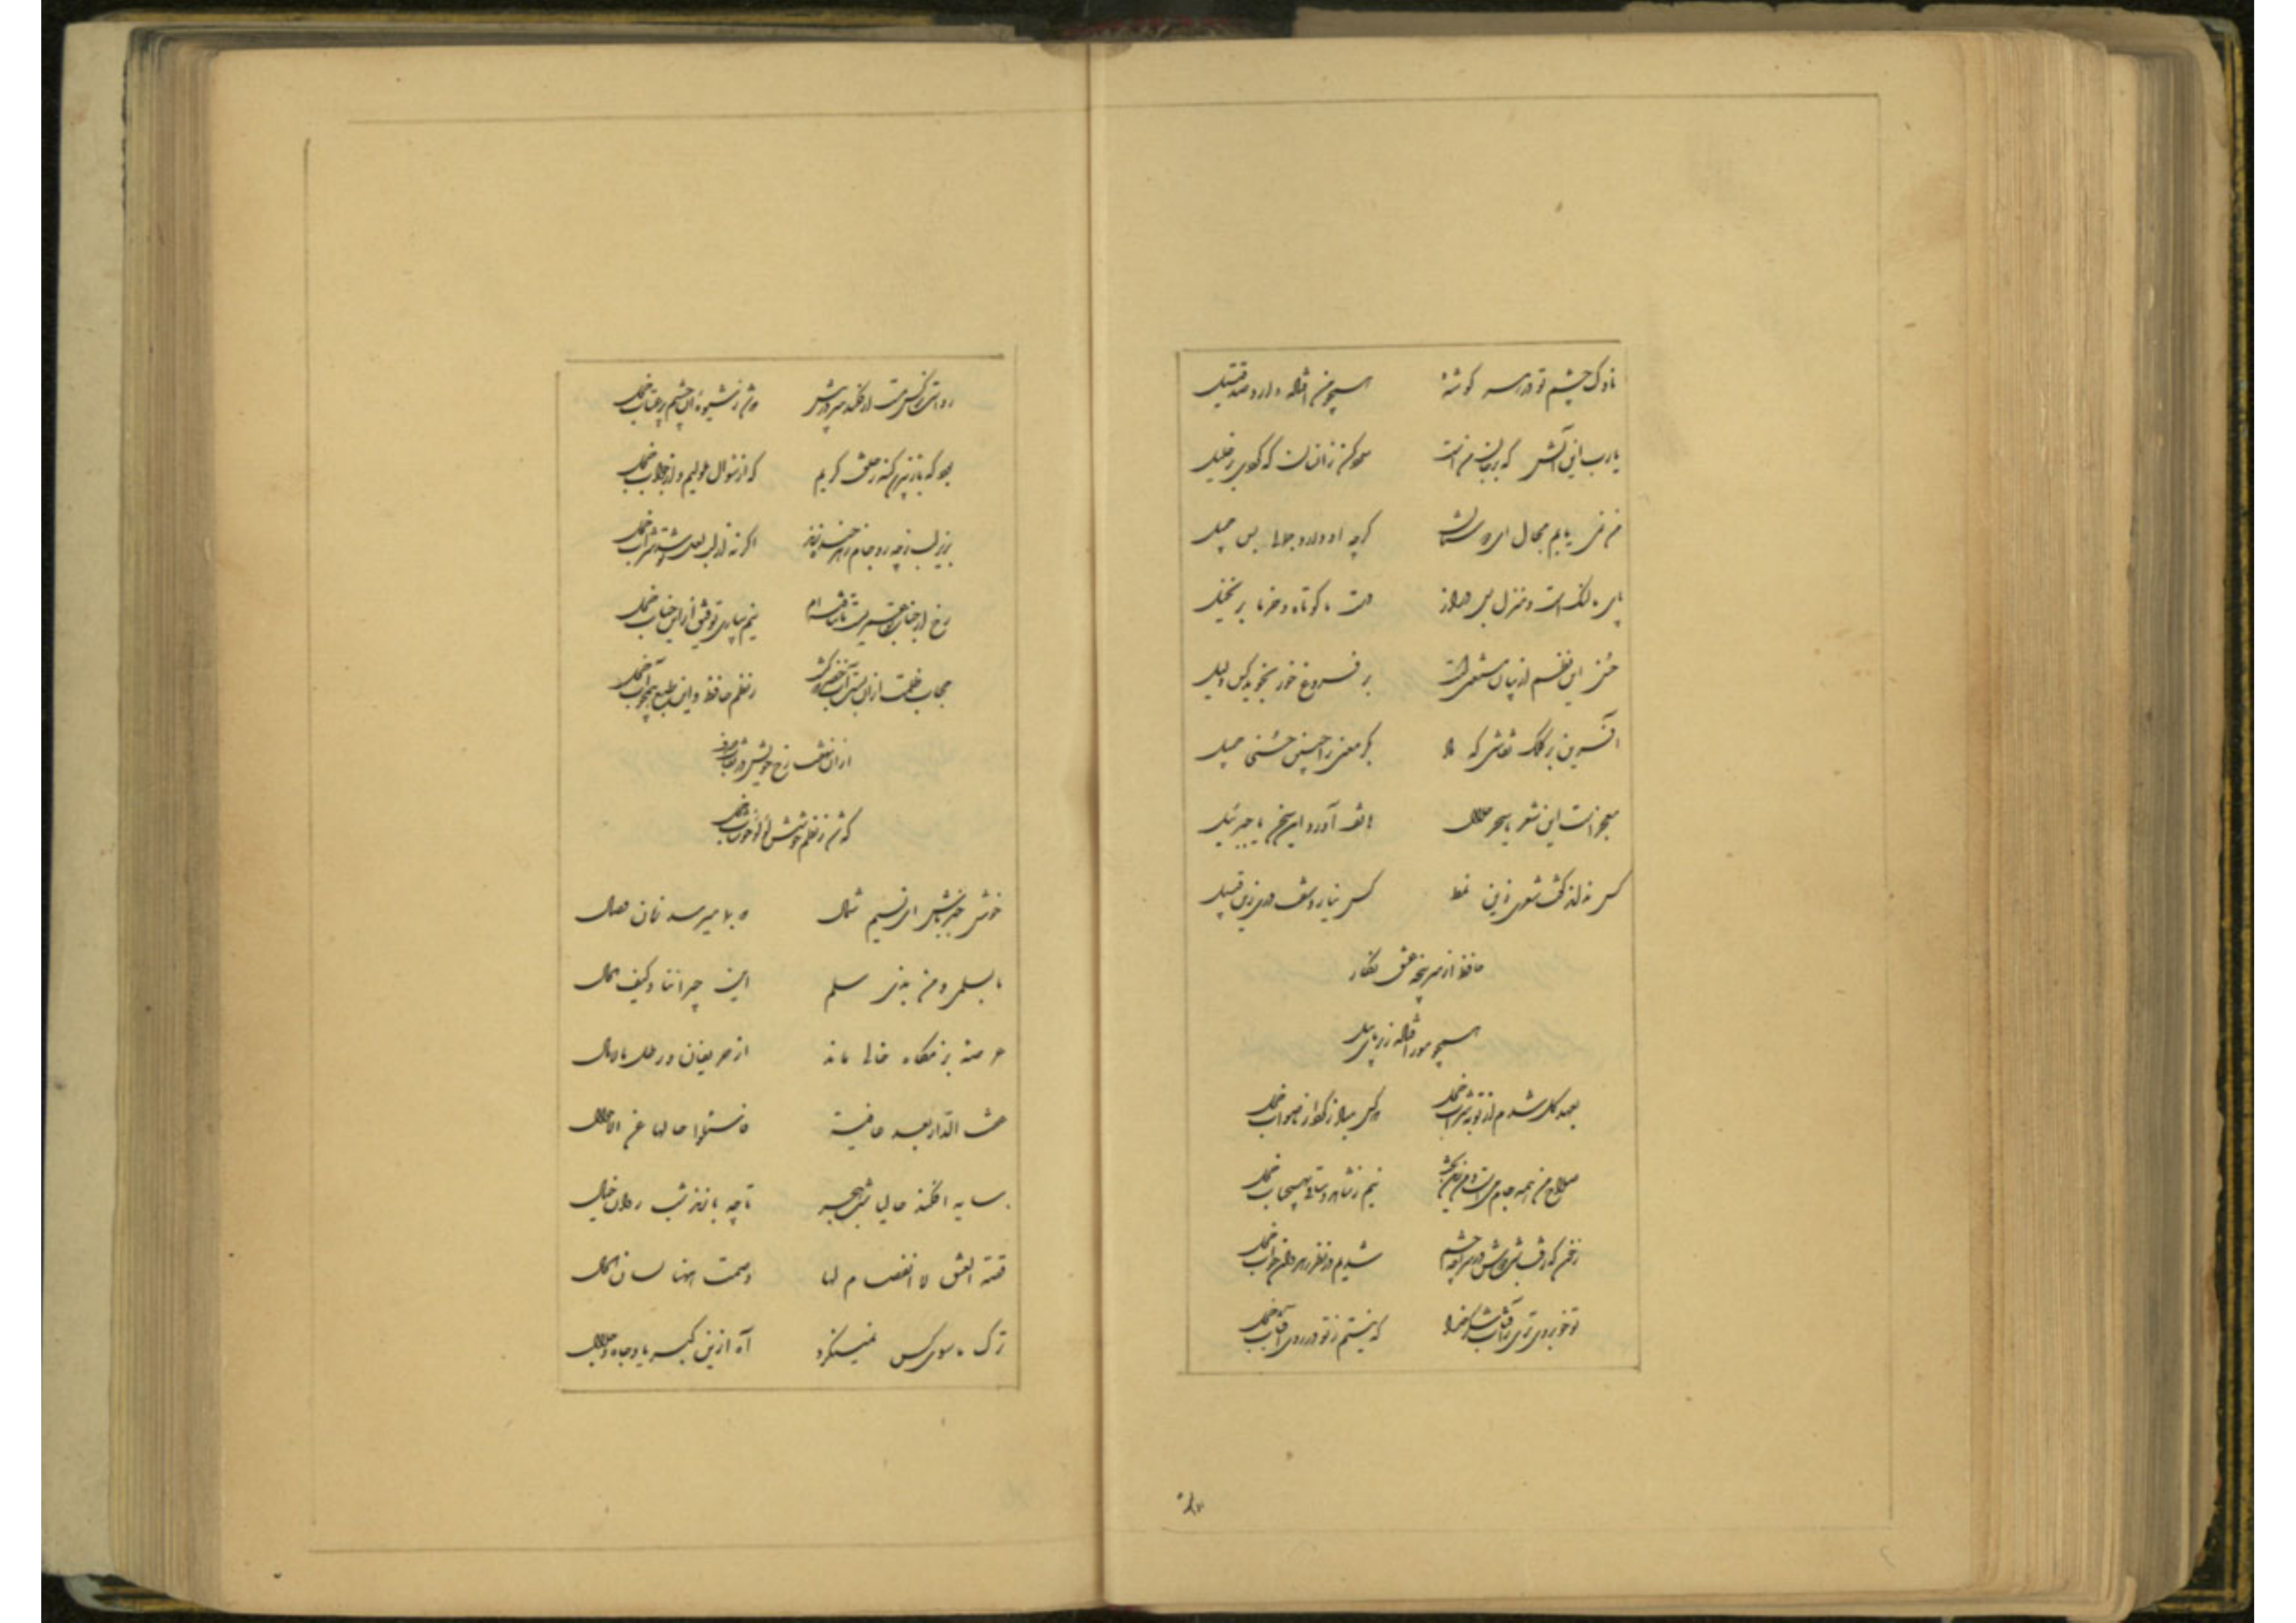 ناوک چشم تو در هر گوشهٔ همچو من افتاده دارد صد قتیل
یارب این آتش که بر جان منست سرد کن زانسان که کردی بر خلیل
من نمی یابم مجال ای دوستان گرچه او دارد جمالی بس جمیل
پای ما لنگ است و منزل بس دراز دست ما کوتاه و خرما بر نخیل
حسن این نظم از بیان مستغنی است بر فروغ خور نجوید کس دلیل
آفرین بر کلک نقاشی که داد بکر معنی را چنین حسنی جمیل
معجزست این شعر یا سحر حلال هاتف آورد این سخن یا جبرئیل
کس نداند گفت شعری زین نمط کس نیارد سفت دری زین قبیل
حافظ از سرپنجه عشق نگار
همچو مور افتاده زیر پای پیل
بعهد گل شدم از توبه شراب خجل که کس مباد ز کردار ناصواب خجل
صلاح من همه جام می است و من زین بحث نیم ز شاهد و ساقی بهیچ باب خجل
ز خون که رفت شب دوش در سراچه چشم شدیم در نظر رهروان خواب خجل
تو خوبروی تری ز آفتاب شکر خدا که نیستم ز تو در روی آفتاب خجل
رواست نرگس مست ار فکند سر در پیش که شد ز شیوه آن چشم پر عتاب خجل
بود که باز نپرسد گنه ز خلق کریم که از سئوال ملولیم و از جواب خجل
بزیر لب ز چه رو جام زهر خنده زند اگر نه از لب لعل تو شد شراب خجل
رخ از جناب تو عمریست تا نتافته ام نیم بیاری توفیق ازین جناب خجل
حجاب ظلمت از آن بست آب خضر که گشت ز نظم حافظ و این طبع همچو آب خجل
از آن نهفت رخ خویش در نقاب صدف
که شد ز نظم خوشش لؤلؤ خوشاب خجل
خوش خبر باش ای نسیم شمال که بما میرسد زمان وصال
ما بسلمی و من بذی سلم این جیراننا و کیف الحال
عرصه بزمگاه خالی ماند از حریفان و رطل مالامال
عفت الدار بعد عافیة فاسئلوا حالها عن الاطلال
سایه افکند حالیا شب هجر تا چه بازند شب روان خیال
قصة العشق لا انفصام لها فصمت ههنا لسان المقال
ترک ما سوی کس نمینگرد آه ازین کبریا و جاه و جلال